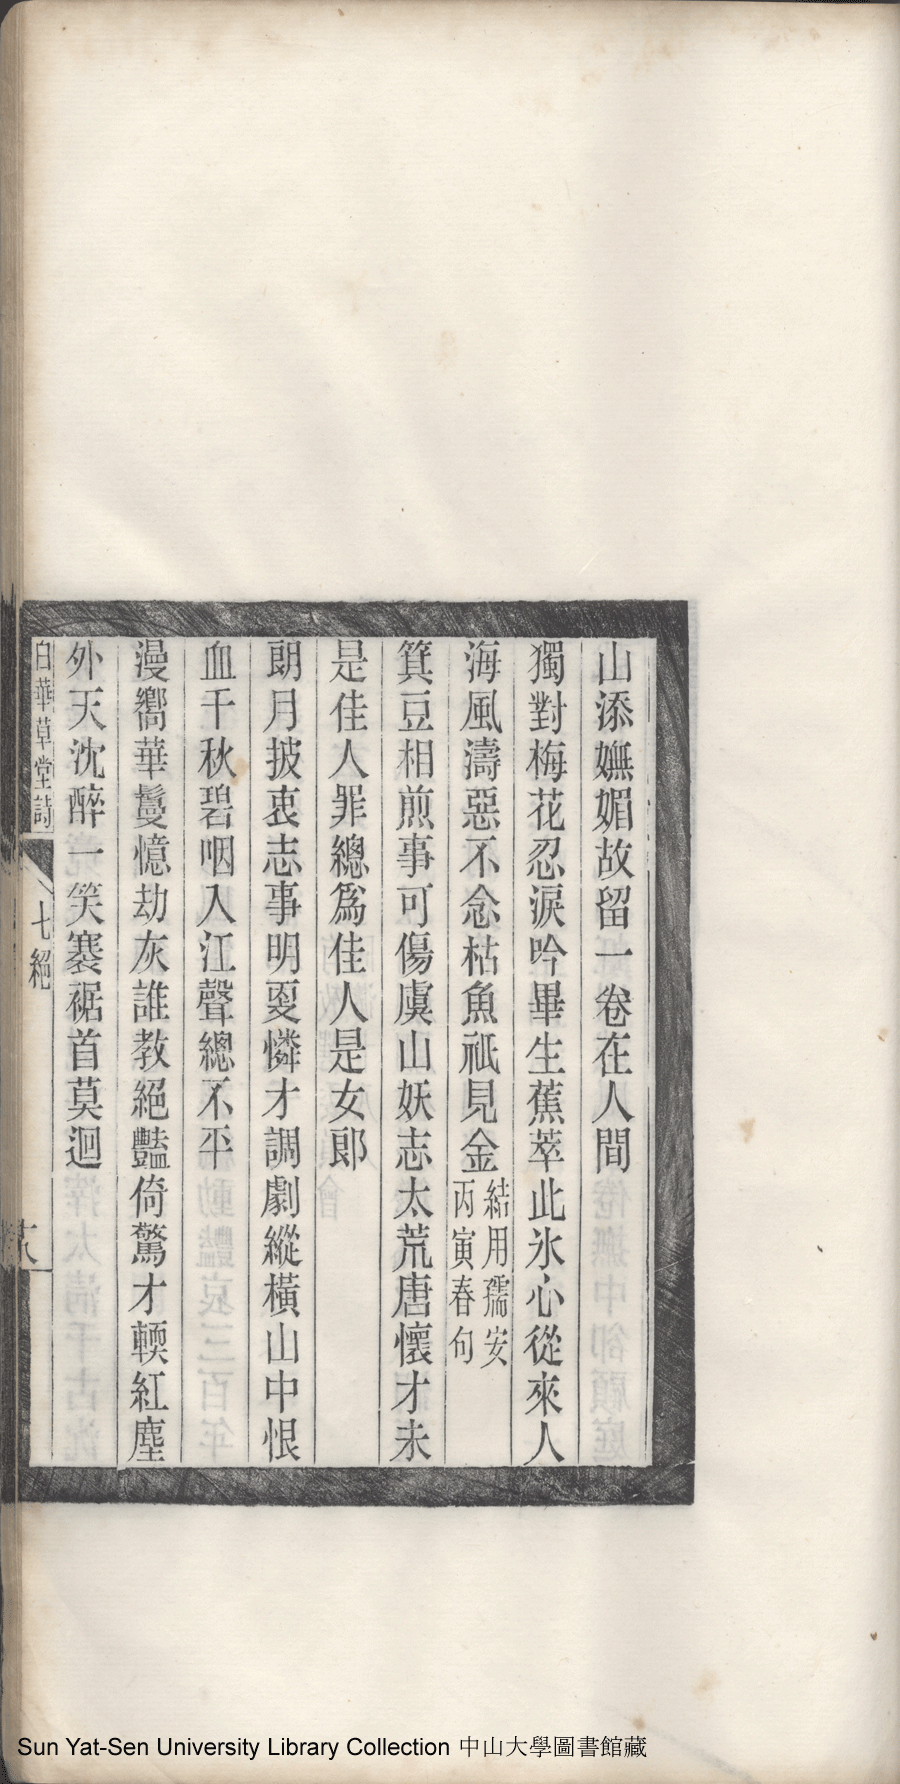 山添嫵媚故留一卷在人間
獨對梅花忍淚吟畢生蕉萃此氷心從來人
海風濤惡不念枯魚祇見金結用孺安
丙寅春句
箕豆相煎事可傷虞山妖志太荒唐懷才未
是佳人罪總爲佳人是女郎
朗月披衷志事明更憐才調劇縱橫山中恨
血千秋碧咽入江聲總不平
漫嚮華鬘憶劫灰誰教絕豔倚驚才輭紅塵
外天沈醉一笑褰裾首莫迴
白華草堂詩
七絕
Sun Yat-Sen University Library Collection 中山大學圖書館藏